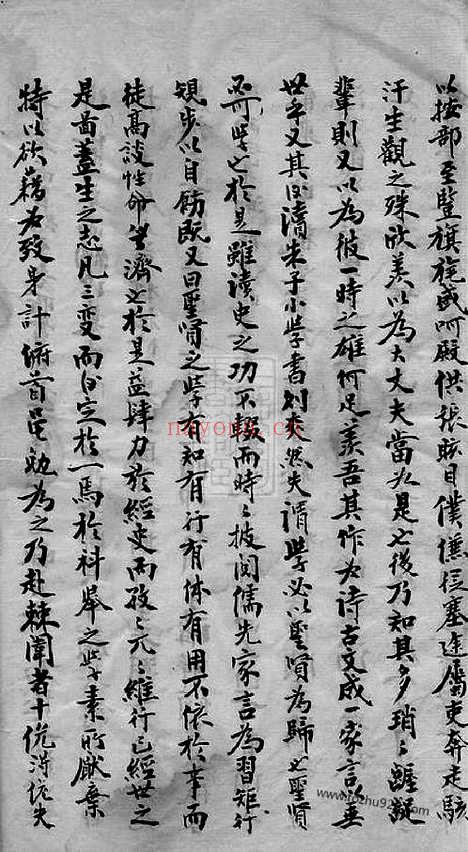 以按部至豎旗旄盛呵殿供張眩目僕僕後塞途屬吏奔走駭
汗生觀之殊欣羨以為大丈夫當如是也後乃知其多瑣瑣齷齪
輩則又以為彼一時之雄何足羨吾其作為詩古文成一家言以垂
世乎又其曰讀朱子小學書則夫然失謂學必以聖賢為歸也聖賢
必可學也於是雖讀史之功不輟而時時披閱儒先家言為習矩行
規步以自飭既又曰聖賢之學有知有行有体有用不依於事而
徒高談性命無濟也於是益肆力於經史而孜孜兀兀維行己經世之
是啚蓋生之志凡三變而後定於一焉於科舉之學素所厭棄
特以欲藉為致身計俯首黽勉為之乃赴棘闈者十僥得依夫
nayona.cn
kongfz92.com